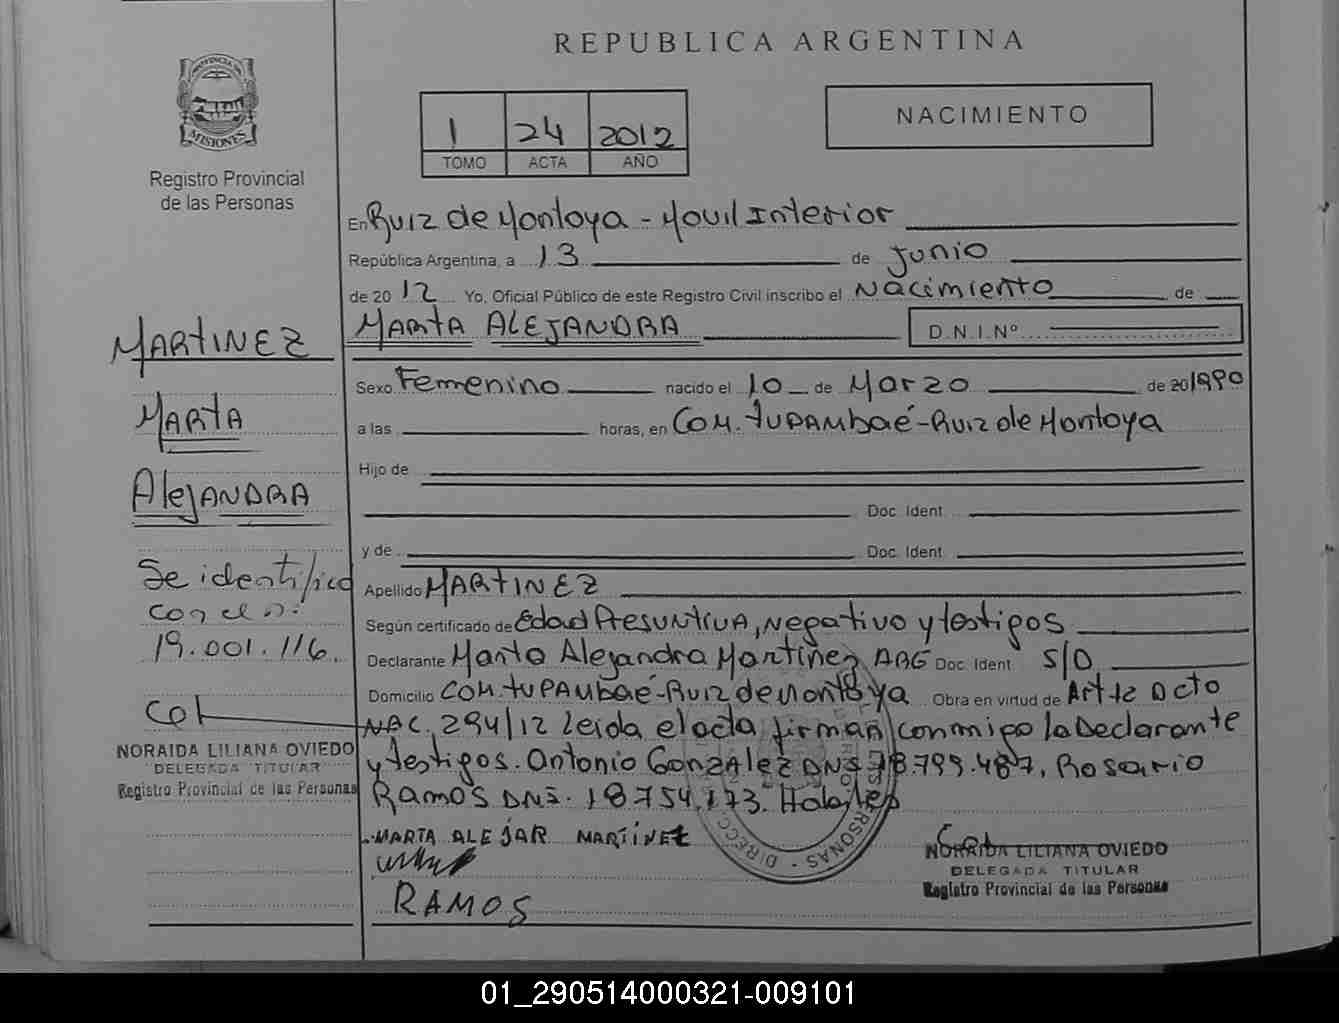 REPUBLICA ARGENTINA
PROVINCIA DE
MISIONES
Registro Provincial
de las Personas
1 24 2012
TOMO ACTA AÑO
NACIMIENTO
En Ruiz de Montoya - Movil Interior
República Argentina, a 13 de Junio
de 2012 Yo, Oficial Público de este Registro Civil inscribo el Nacimiento de
MARTA ALEJANDRA D.N.I.Nº
Sexo Femenino nacido el 10 de Marzo de 20 1990
a las horas, en Com. tupambaé - Ruiz de Montoya
Hijo de
Doc. Ident.
y de Doc. Ident.
Apellido MARTINEZ
Según certificado de Edad Presuntiva, Negativo y testigos
Declarante Marta Alejandra Martinez ARG Doc. Ident. S/D
Domicilio Com. tupambaé - Ruiz de Montoya Obra en virtud de Art 12 Dcto
NAC. 294/12 leida el acta firman conmigo la Declarante
y testigos. Antonio Gonzalez DNI 18.799.487, Rosario
Ramos DNI. 18754.173.
MARTA ALEJAR MARTÍNEZ
RAMOS
NORAIDA LILIANA OVIEDO
DELEGADA TITULAR
Registro Provincial de las Personas
MARTINEZ
MARTA
AlejANDRA
Se identifico
con el n:
19.001.116.
NORAIDA LILIANA OVIEDO
DELEGADA TITULAR
Registro Provincial de las Personas
01_290514000321-009101